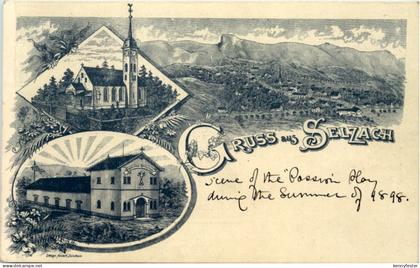 GRUSS aus SELZACH
Scene of the "Passion Play
during the Summer of 1898.